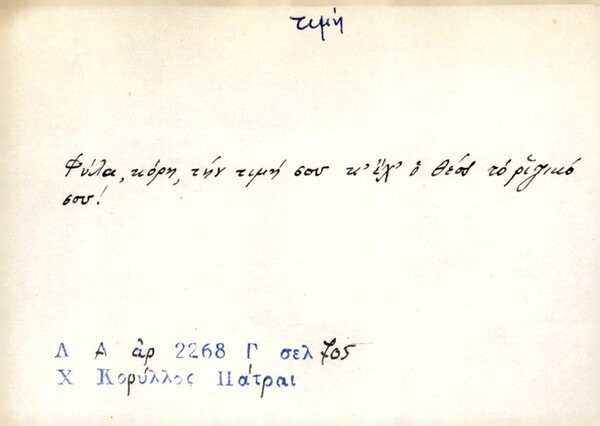 τιμή
Φύλα, κόρη, τήν τιμή σου κ' ἔχ' ὁ Θεός τό ριζικό
σου!
Λ Α ἀρ 2268 Γ σελ 705
Χ Κορύλλος Πάτραι